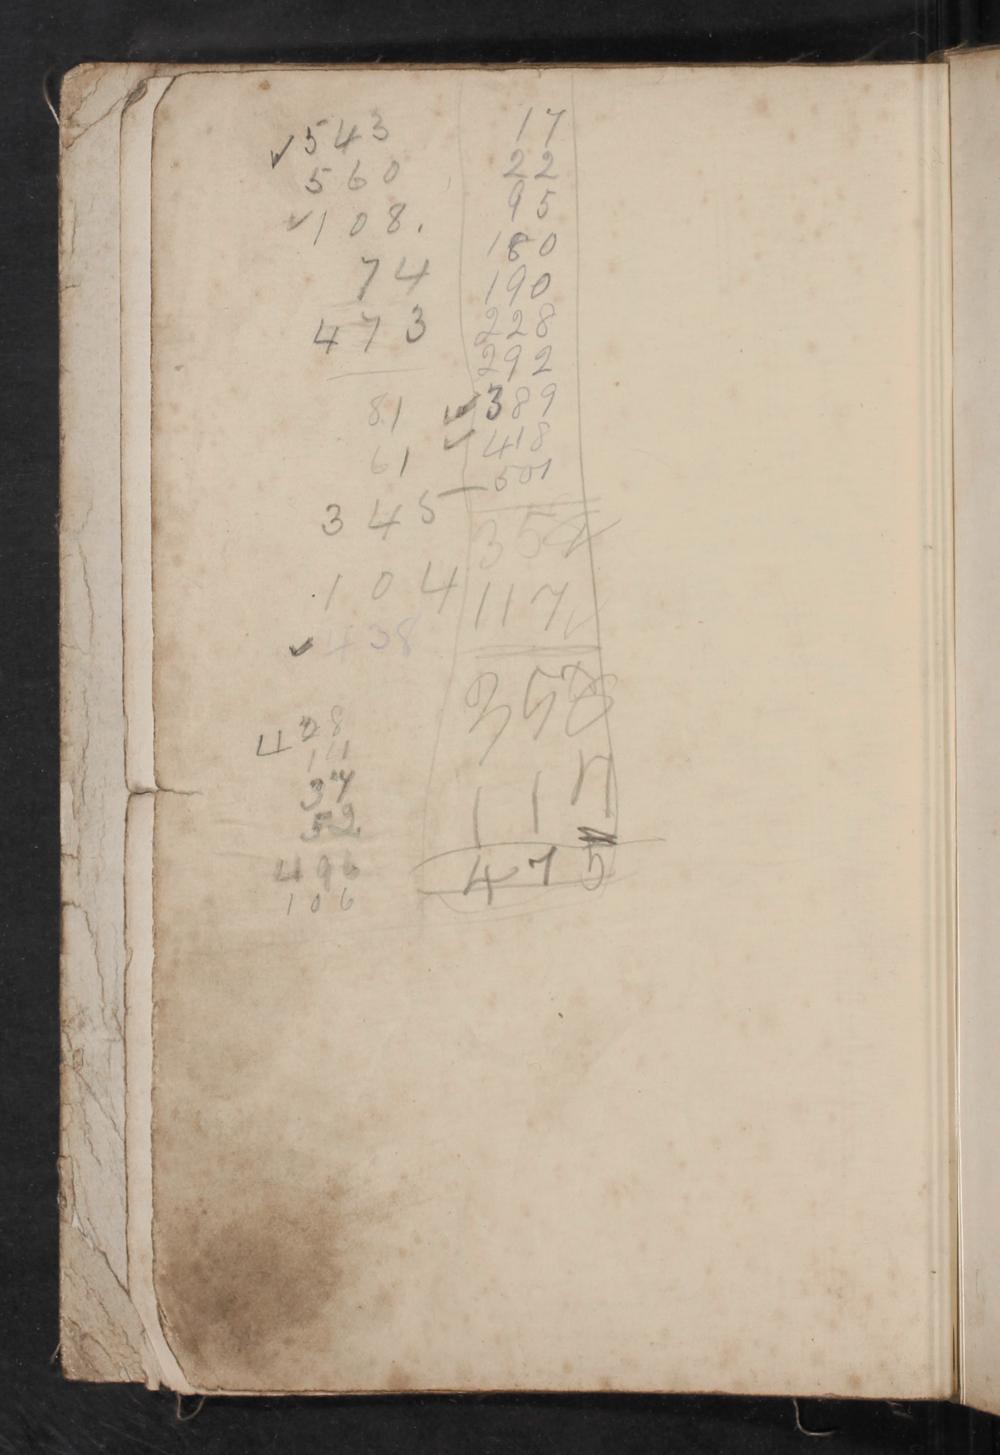 ✓543
560
✓108.
74
473
81
61
345
104
✓438
428
37
52
496
106
17
22
95
180
190
228
292
✓389
✓418
501
358
117
358
117
475